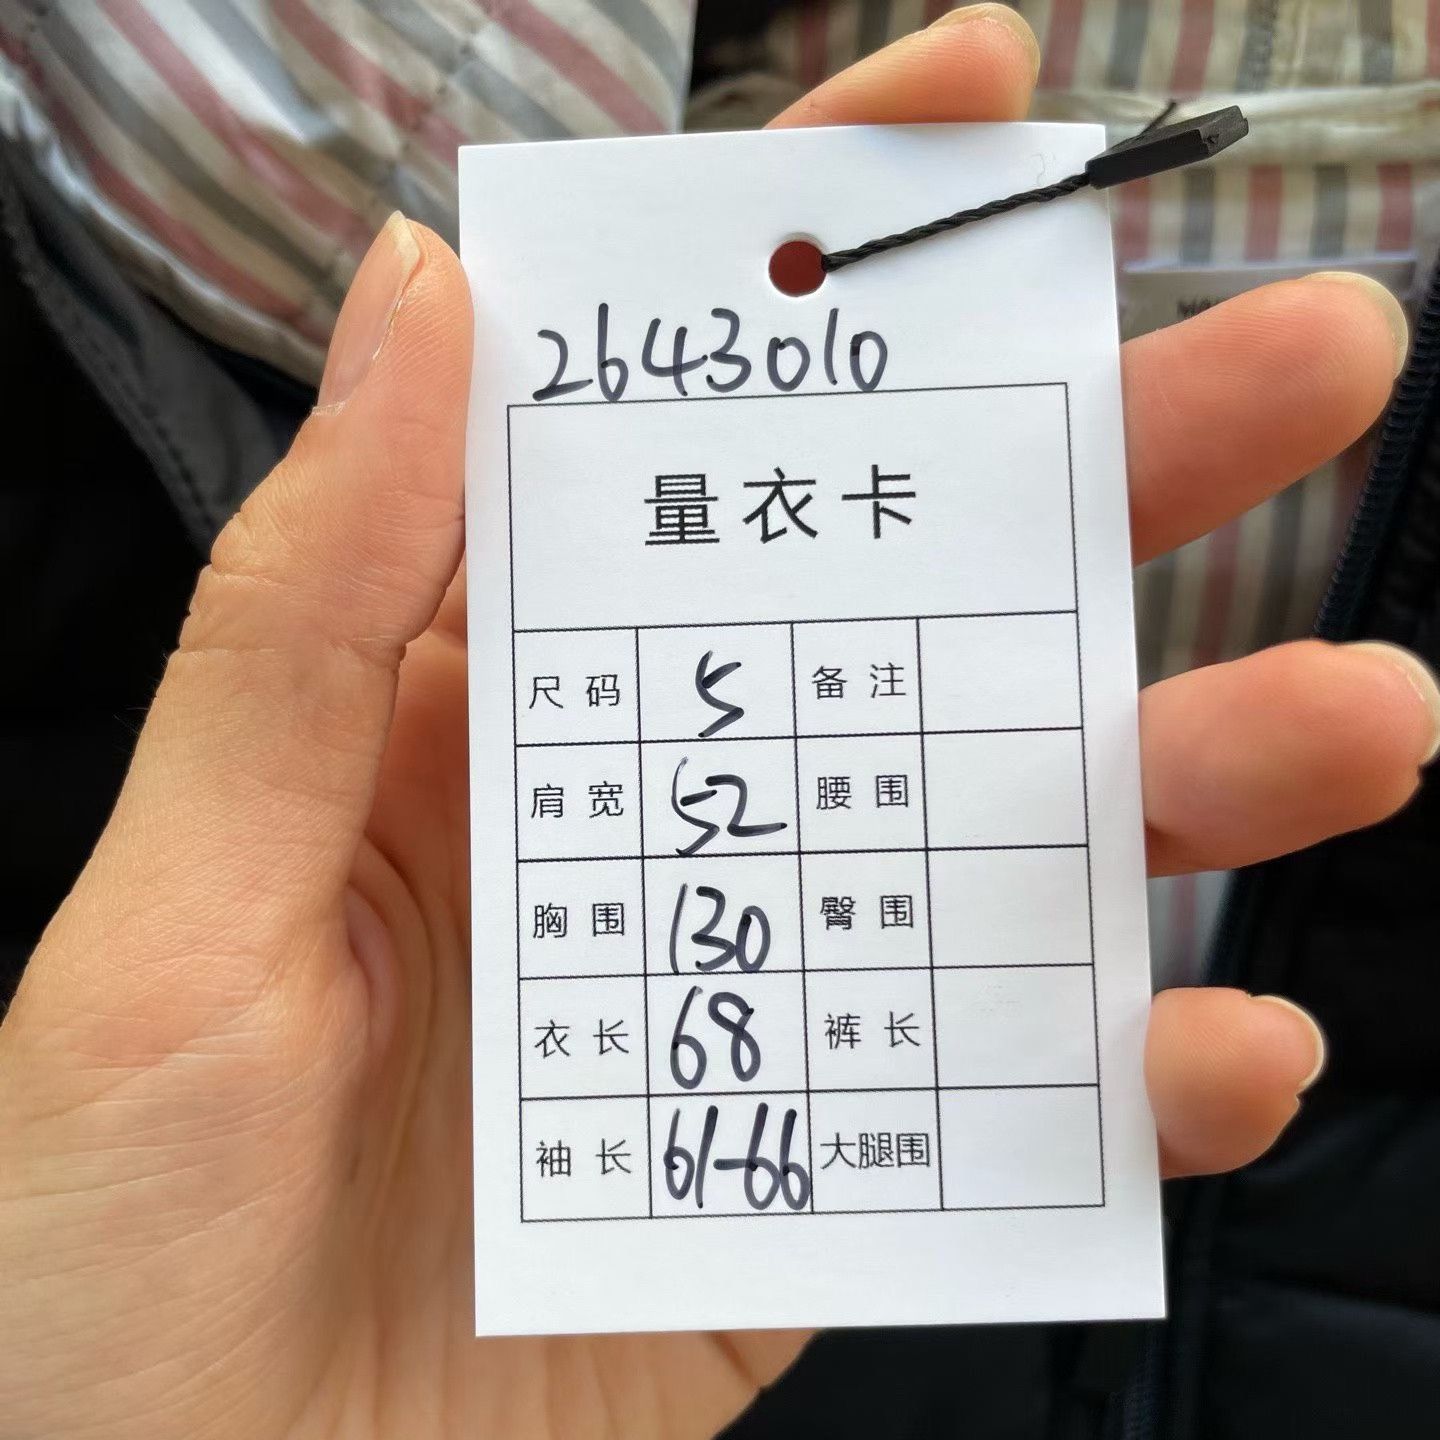 2643010
量衣卡
尺码 5 备注
肩宽 52 腰围
胸围 130 臀围
衣长 68 裤长
袖长 61-66 大腿围